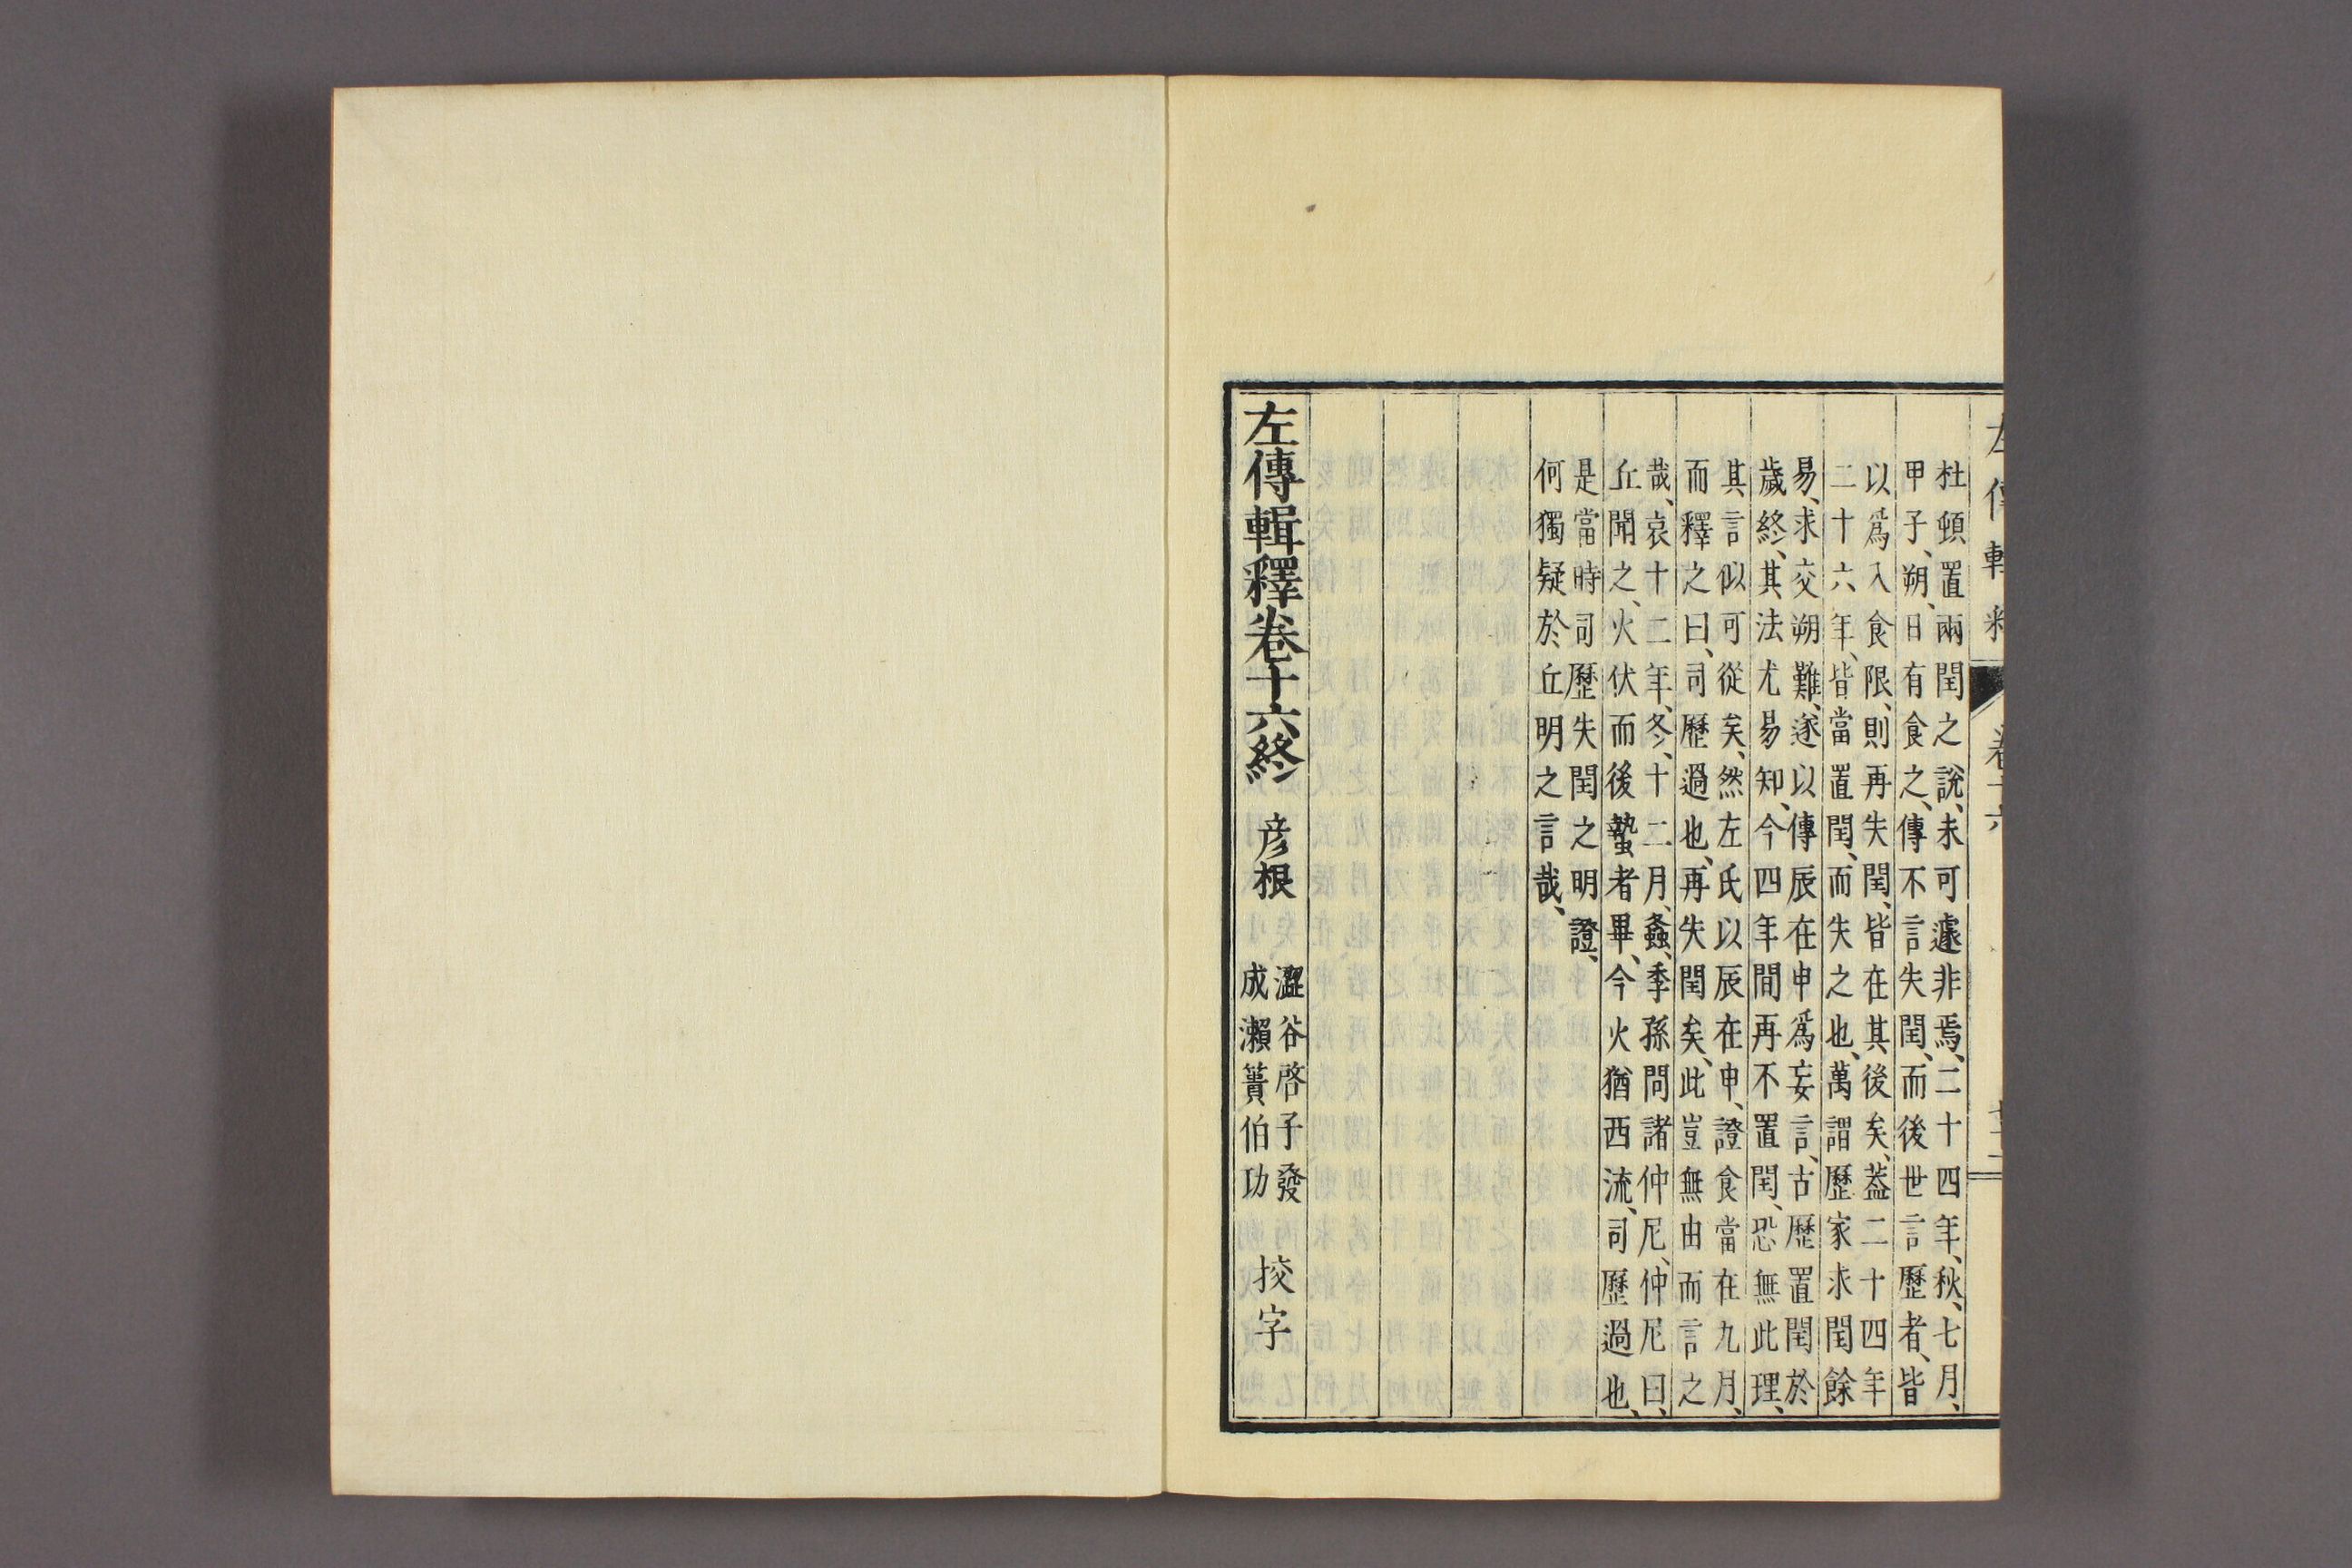 杜頓置兩閏之說、未可遽非焉、二十四年、秋、七月、
甲子、朔、日有食之、傳不言失閏、而後世言歷者、皆
以爲入食限、則再失閏、皆在其後矣、蓋二十四年
二十六年、皆當置閏、而失之也、萬謂歷家求閏餘
易、求交朔難、逐以傳辰在申爲妄言、古歷置閏於
歲終、其法尤易知、今四年間再不置閏、恐無此理、
其言似可從矣、然左氏以辰在申、證食當在九月、
而釋之曰、司歷過也、再失閏矣、此豈無由而言之
哉、哀十二年、冬、十二月、螽、季孫問諸仲尼、仲尼曰、
丘聞之、火伏而後蟄者畢、今火猶西流、司歷過也、
是當時司歷失閏之明證、
何獨疑於丘明之言哉、
左傳輯釋卷十六終 彦根 澀谷啓子發
成瀨簣伯功 挍字